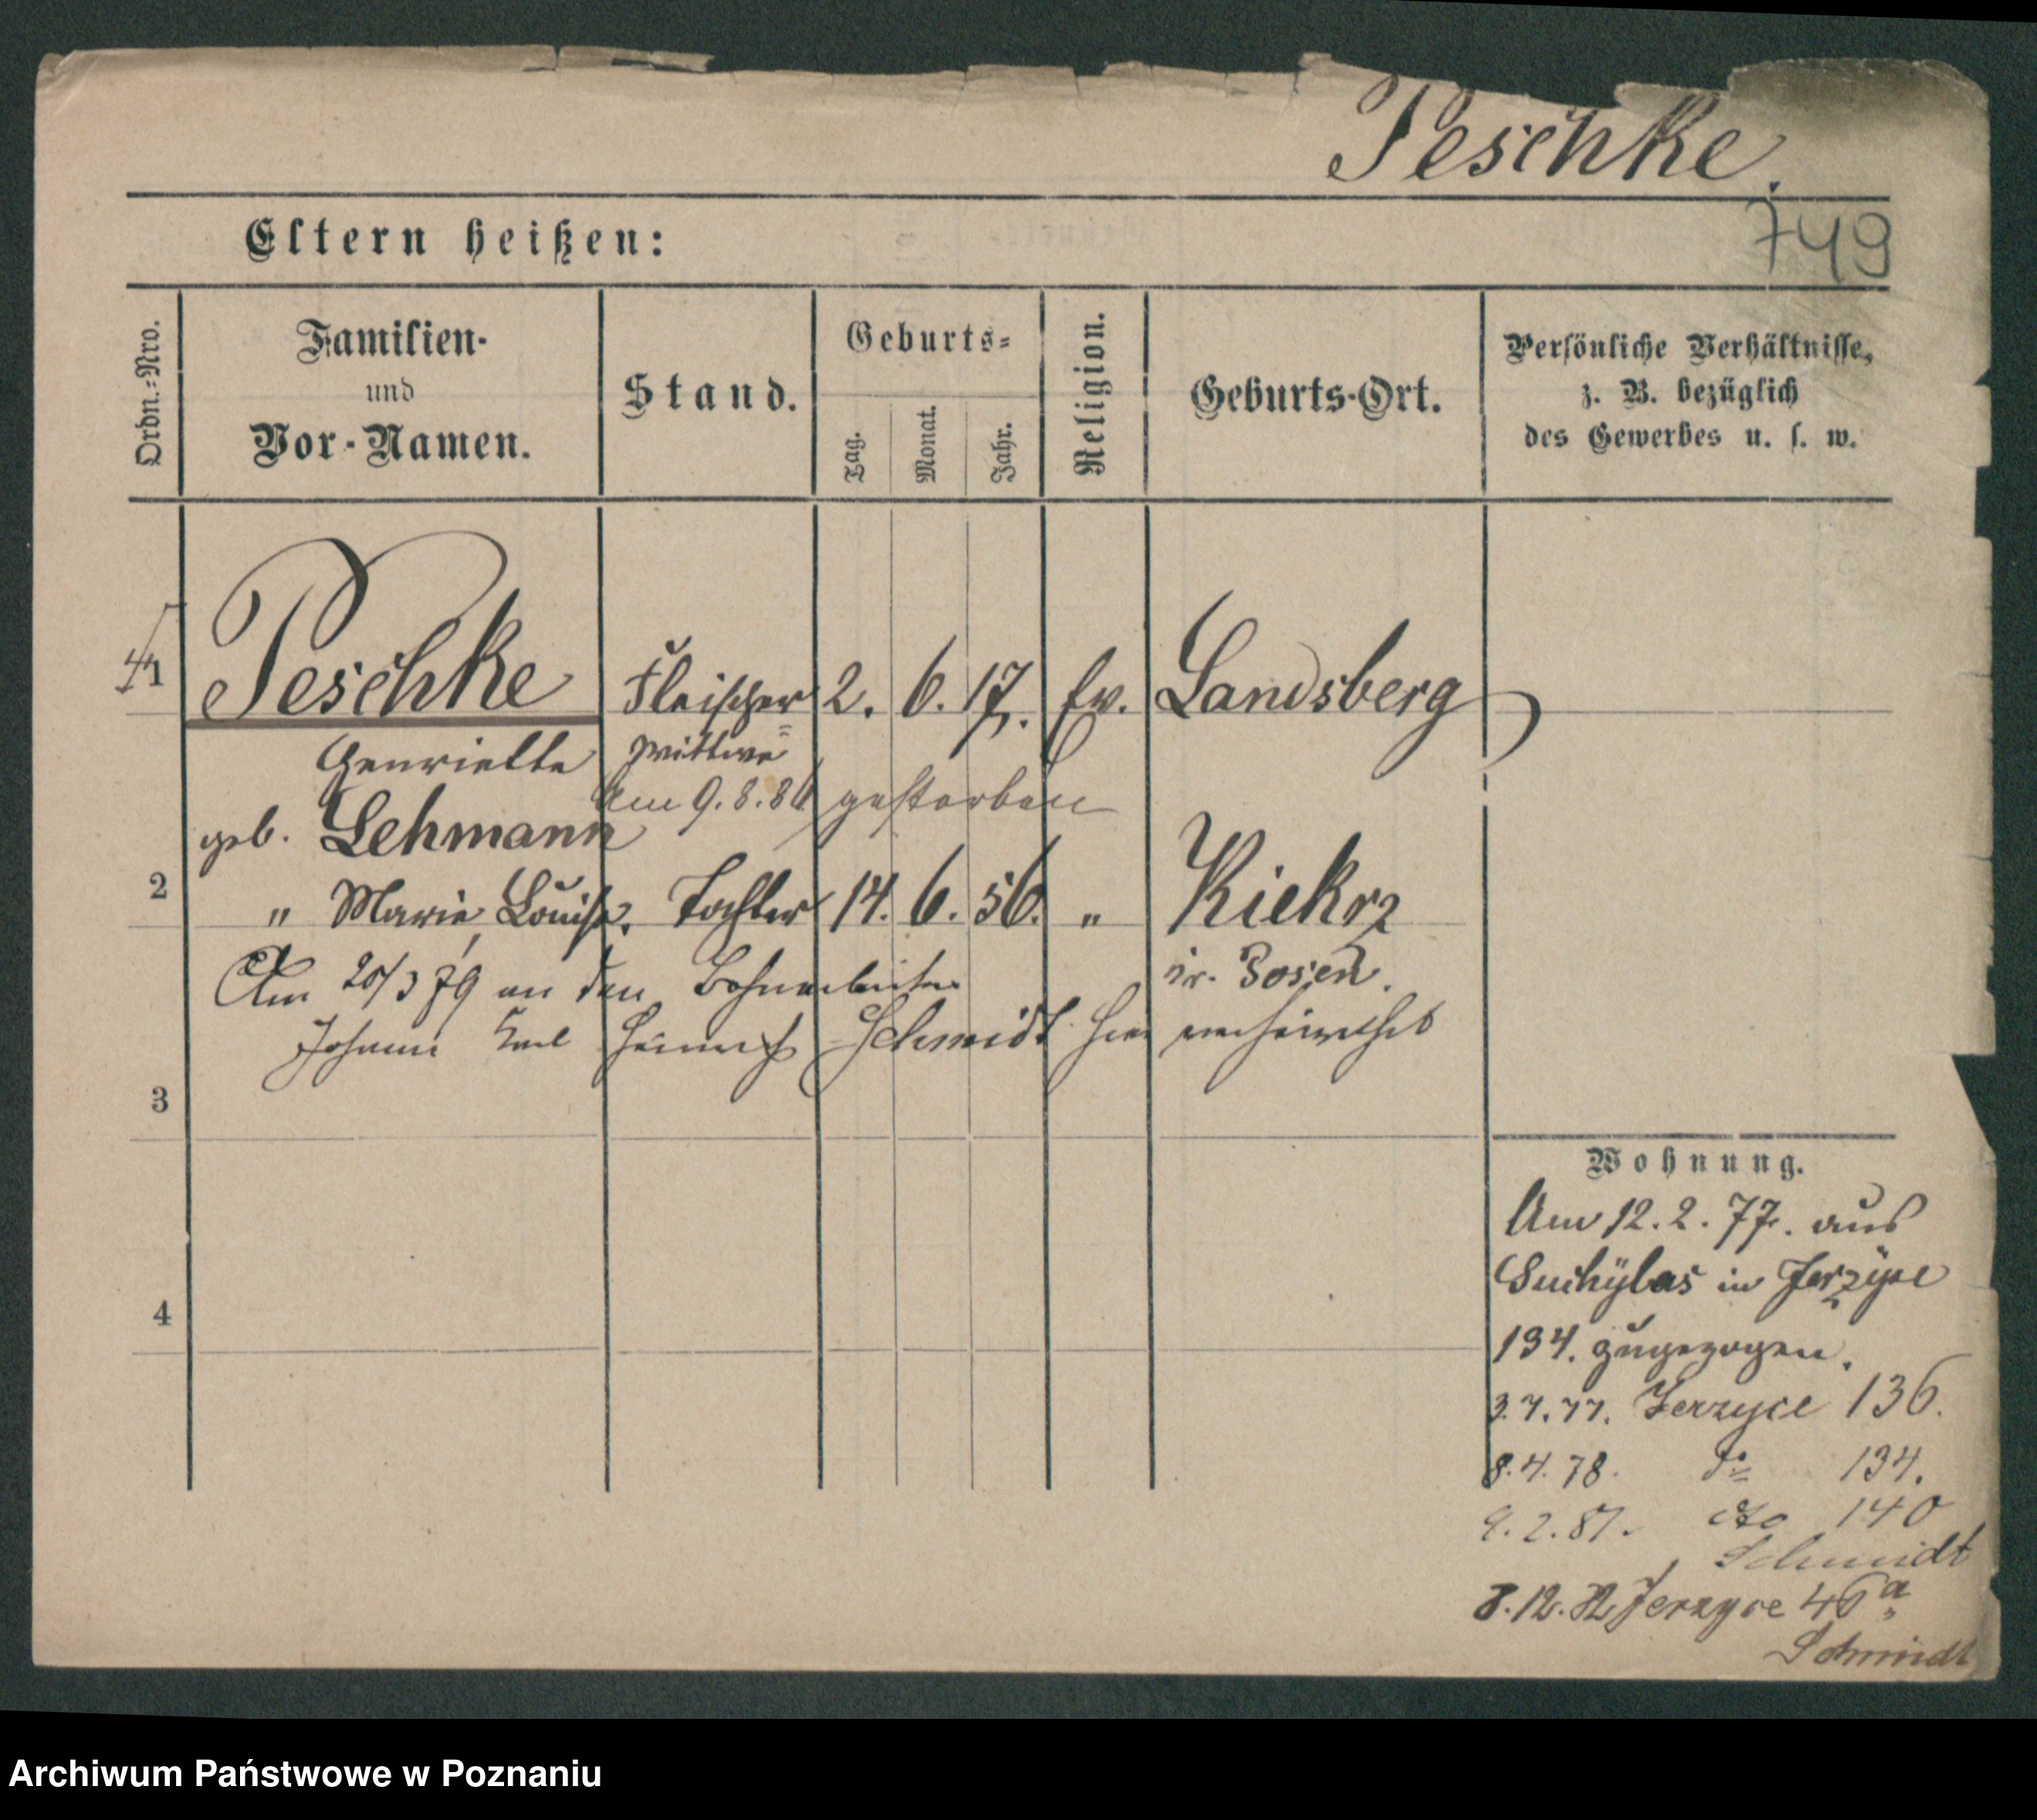 Peschke.
749
Eltern heißen:
Ordn.=Nro.
Familien-
und
Vor-Namen.
Stand.
Geburts=
Tag.
Monat.
Jahr.
Religion.
Geburts-Ort.
Persönliche Verhältnisse,
z. B. bezüglich
des Gewerbes u. s. w.
1 Peschke Fleischer 2. 6. 17. Ev. Landsberg
Henriette Wittwe
Am 9.8.86 gestorben
geb. Lehmann
2 " Marie Louise. Tochter 14. 6. 56. " Kiekrz
Kr. Posen.
Am 20/3 79 an den Bahnarbeiter
Johann Karl Heinrich Schmidt hier verheirathet
3
4
Wohnung.
Am 12.2.77. aus
Suchylas in Jerzyce
134. zugezogen.
3.7.77. Jerzyce 136.
8.4.78. do 134.
9.2.81. dto 140
Schmidt
8.12.82 Jerzyce 46a
Schmidt
Archiwum Państwowe w Poznaniu